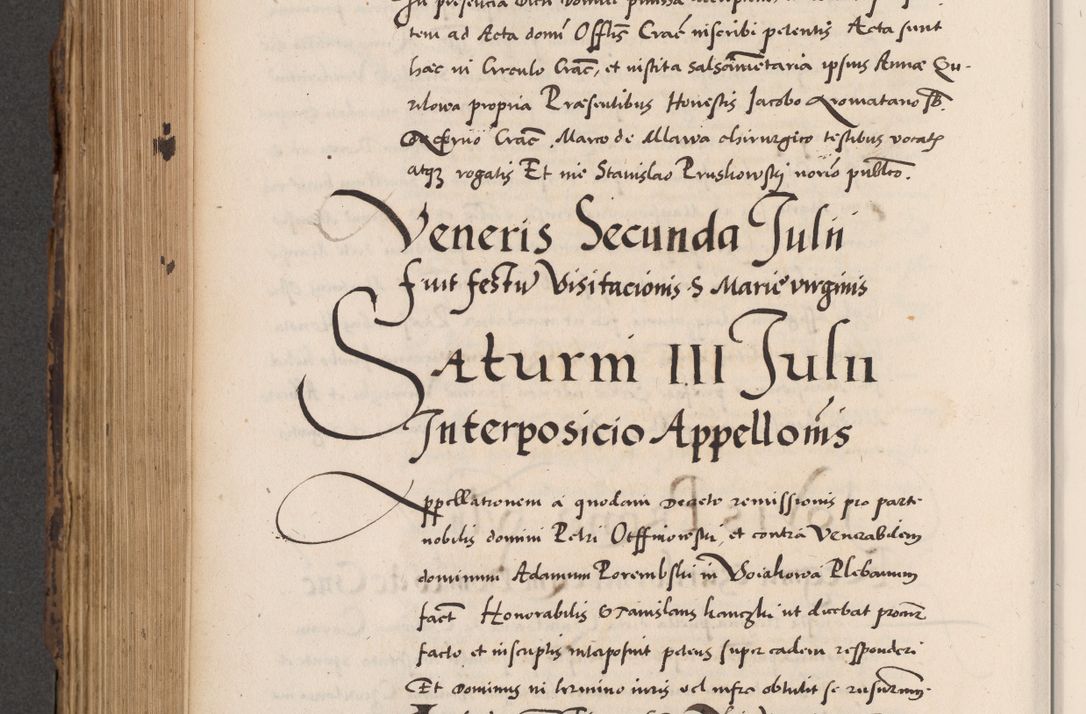 tem ad Acta domi Offlis Crac inscribi petentis Acta sunt
hæc in Circulo Crac, et insitita ipsius Annæ Qu-
rilowa propria Præsentibus Honestis Jacobo Aromatario
Crac. Marco de chirurgico testibus vocatis
atq3 rogatis Et me Stanislao Pruskowskij norio publco.
Veneris Secunda Julii
Fuit festu Visitacionis S Marie virginis
Saturni III Julii
Interposicio Appellonis
Appellationem a quodam Decreto remissionis pro parte
nobilis domini Petri Otffinowski, et contra Venerabilem
dominum Adamum Porembski in Woiakowa Plebanum
fact Honorabilis Stanislaus hanczki ut dicebat procur
facto et inscriptis interposuit petens super eadem responderi
Et Dominus in termino iuris vel infra obtulit se rusurum.